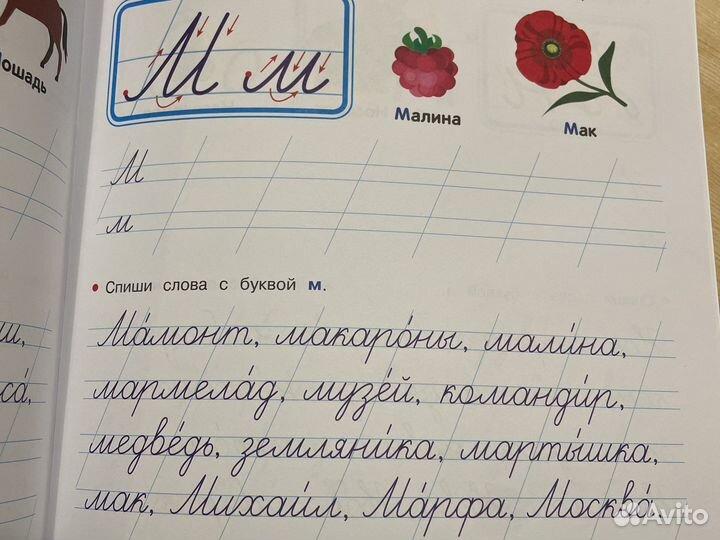 Лошадь
М м
Малина
Мак
М
м
• Спиши слова с буквой м.
Ма́монт, макаро́ны, мали́на,
мармела́д, музе́й, команди́р,
медве́дь, земляни́ка, марты́шка,
мак, Михаи́л, Ма́рфа, Москва́.
Avito